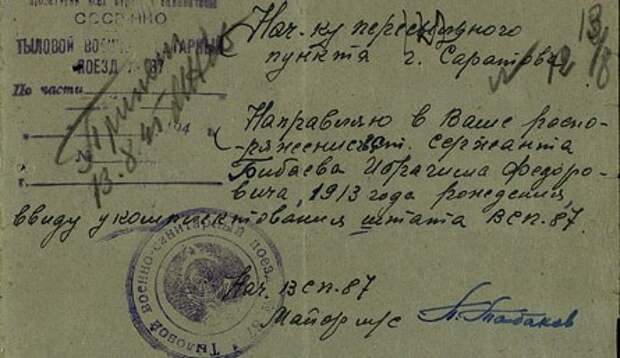 Пролетарии всех стран
СССР НКО
ТЫЛОВОЙ ВОЕННО-САНИТАРНЫЙ
ПОЕЗД № 87
По части
194
г.
13.8.45
Нач-ку пересыльного
пункта г. Саратова
Направляю в Ваше распо-
-ряжение ст. сержанта
Бибаева Ибрагима Федоро-
вича, 1913 года рождения,
ввиду укомплектования штата ВСП-87.
Нач. ВСП-87
Майор м/с
П. Табаков
Тыловой военно-санитарный поезд